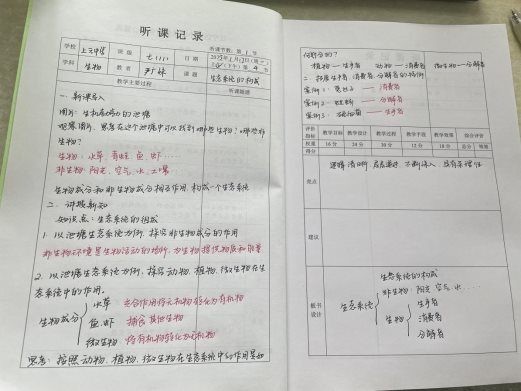 听课记录
学校 上元中学 班级 七(11) 日期 听课节数:第 1 节
学科 生物 教者 课题 生态系统的构成
教学主要过程 听课随想
一、新课导入
图片:生机勃勃的池塘
观察图片,思考在这个池塘中可以找到哪些生物?哪些非生物?
生物:水草、青蛙、鱼、虾……
非生物:阳光、空气、水、土壤
生物成分和非生物成分相互作用,构成一个生态系统
二、讲授新知
知识点:生态系统的构成
1. 以池塘生态系统为例,探究非生物成分的作用
非生物环境是生物活动的场所,为生物提供物质和能量
2. 以池塘生态系统为例,探究动物、植物、微生物在生
态系统中的作用。
生物成分
水草 光合作用将无机物转化为有机物
鱼、虾 捕食其他生物
微生物 将有机物转化为无机物
思考:按照动物、植物、微生物在生态系统中的作用是如
何划分的?
植物——生产者 动物——消费者 微生物——分解者
二、拓展生产者、消费者、分解者的特例
案例1: ——消费者
案例2: 蚯蚓——分解者
案例3: ——生产者
评价指标 教学目标 教学设计 教学过程 教学手段 教学效果 综合评价
权重 16分 24分 30分 12分 18分 总分 等级
得分
亮点
逻辑清晰 层层递进 不断深入
建议
板书设计
生态系统的构成
生态系统
非生物:阳光、空气、水……
生物
生产者
消费者
分解者